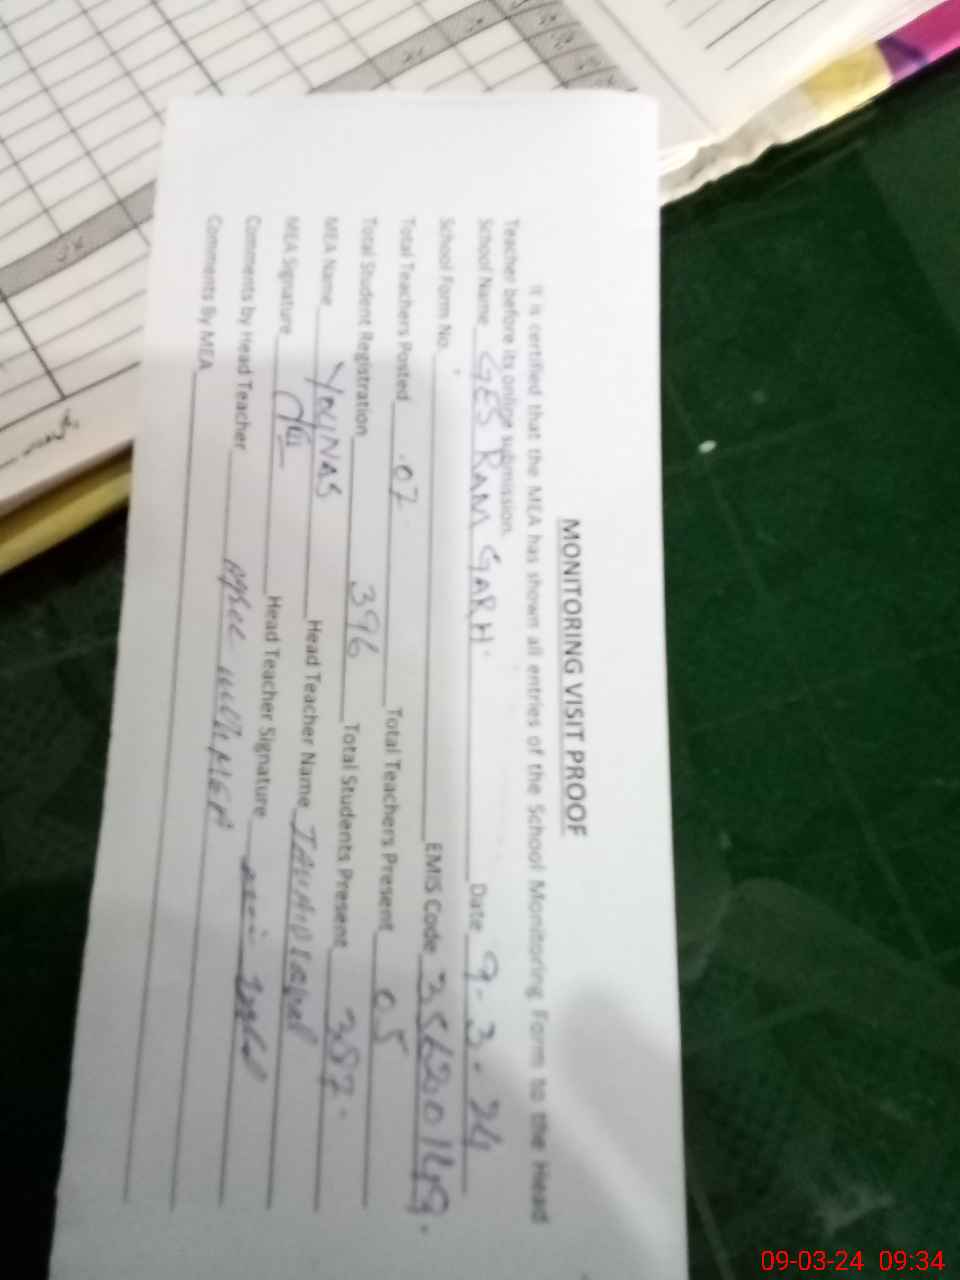 MONITORING VISIT PROOF
It is certified that the MEA has shown all entries of the School Monitoring Form to the Head
Teacher before its online submission.
School Name GES RAM GARH. Date 9.3.24
School Form No. EMIS Code
Total Teachers Posted 07 Total Teachers Present 05
Total Student Registration 396 Total Students Present 387.
MEA Name YOUNAS Head Teacher Name
MEA Signature Head Teacher Signature
Comments by Head Teacher
Comments By MEA
09-03-24 09:34